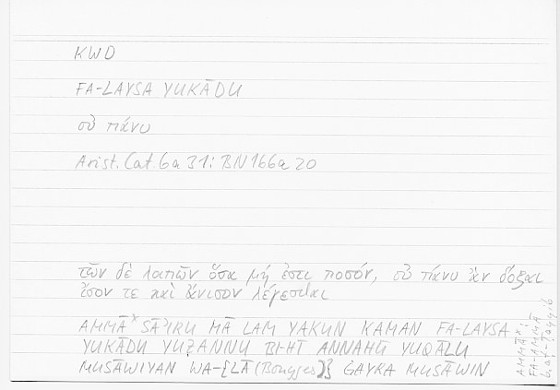 KWD
FA-LAYSA YUKĀDU
οὐ πάνυ
Arist. Cat. 6a31: BN166a20
τῶν δὲ λοιπῶν ὅσα μή ἐστι ποσόν, οὐ πάνυ ἂν δόξαι
ἴσον τε καὶ ἄνισον λέγεσθαι
AMMĀ* SĀʾIRU MĀ LAM YAKUN KAMAN FA-LAYSA
YUKĀDU YUẒANNU BI-HĪ ANNAHŪ YUQĀLU
MUSĀWIYAN WA-{LĀ (Bouyges)} ĠAYRA MUSĀWIN
AMMĀ*:
FA-AMMĀ